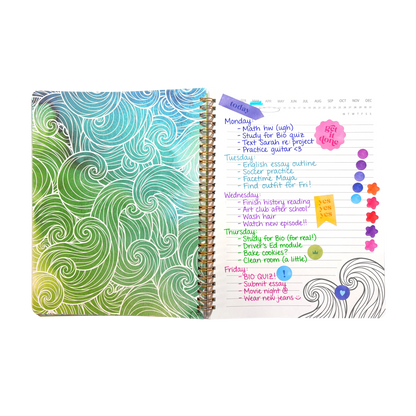 today
JAN FEB MAR APR MAY JUN JUL AUG SEP OCT NOV DEC
Monday:
- Math hw (ugh)
- Study for Bio quiz
- Text Sarah re: project
- Practice guitar <3
Get it Done
Tuesday:
- English essay outline
- Soccer practice
- Facetime Maya
- Find outfit for Fri!
Wednesday:
- Finish history reading
- Art club after school?
- Wash hair
- Watch new episode!!
Thursday:
- Study for Bio (for real!)
- Driver's Ed module
- Bake cookies?
- Clean room (a little)
Friday:
- BIO QUIZ!
- Submit essay
- Movie night @
- Wear new jeans
!